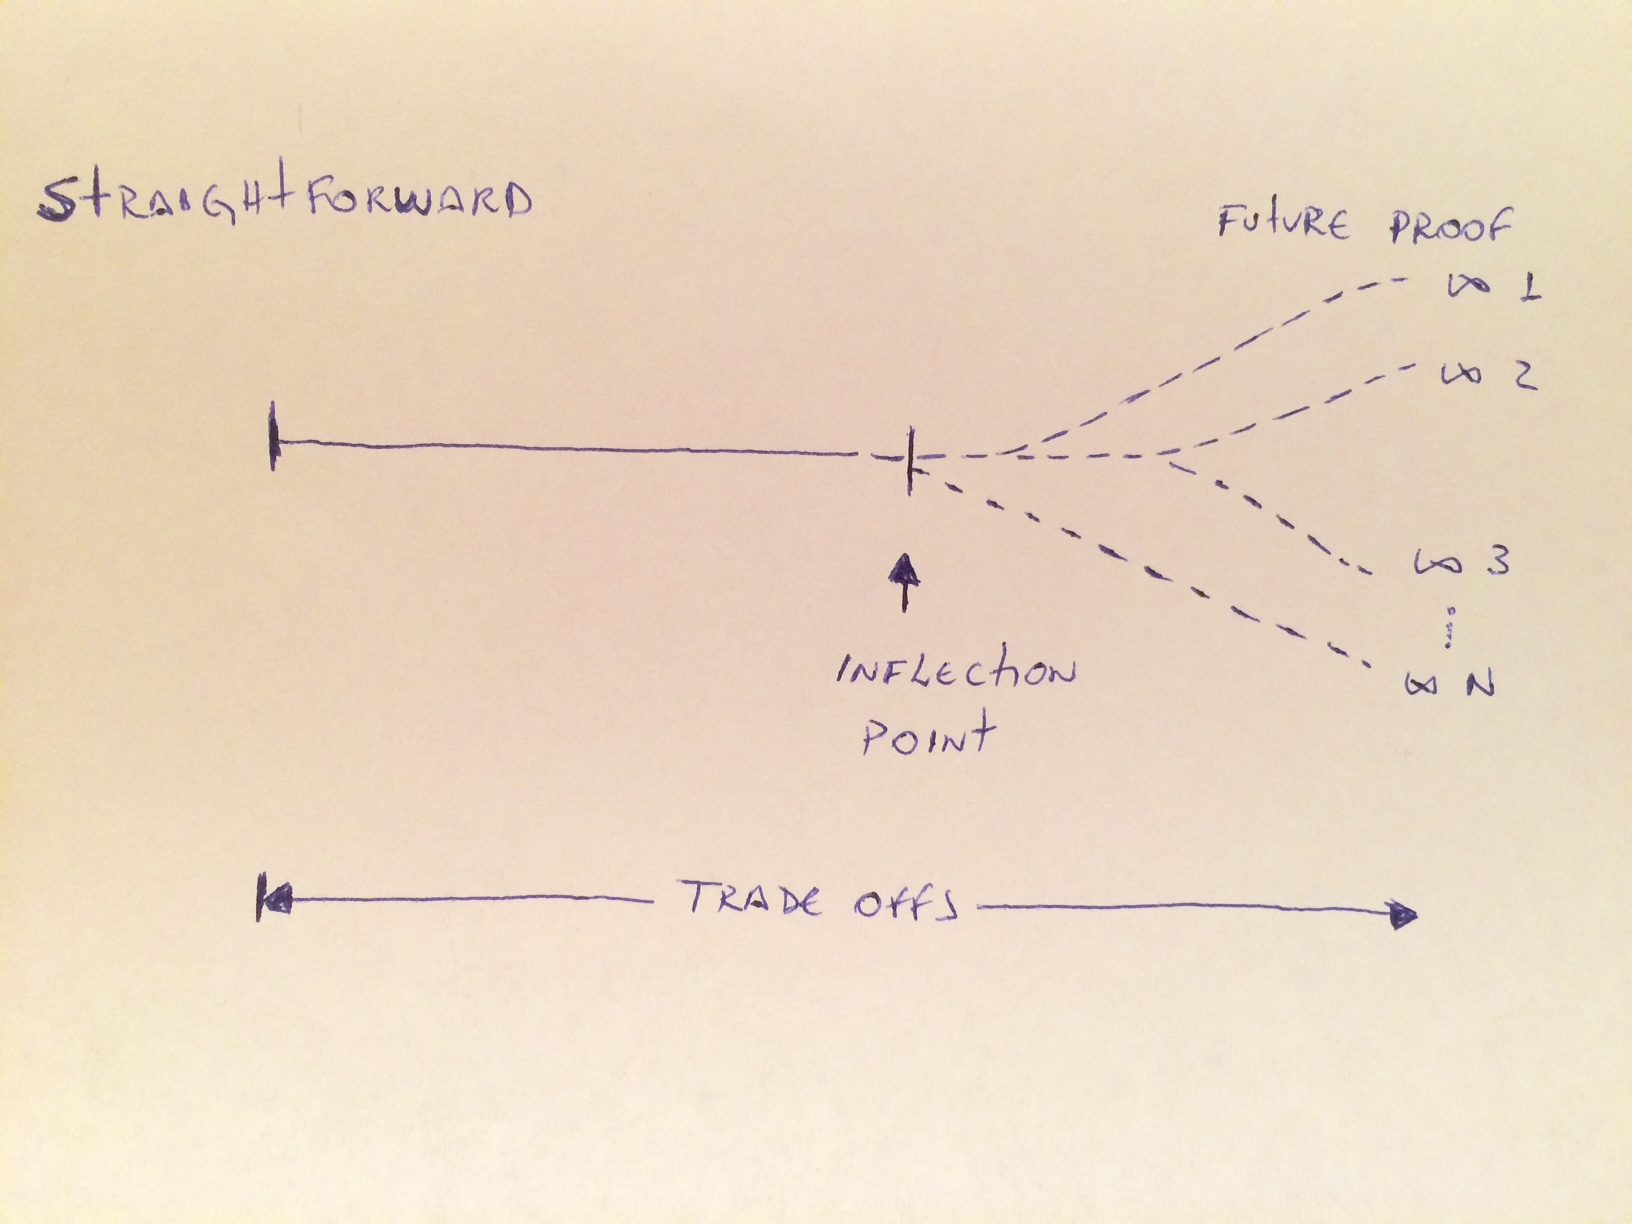 STRAIGHTFORWARD
FUTURE PROOF
∞ 1
∞ 2
∞ 3
⋮
∞ N
INFLECTION
POINT
TRADE OFFS